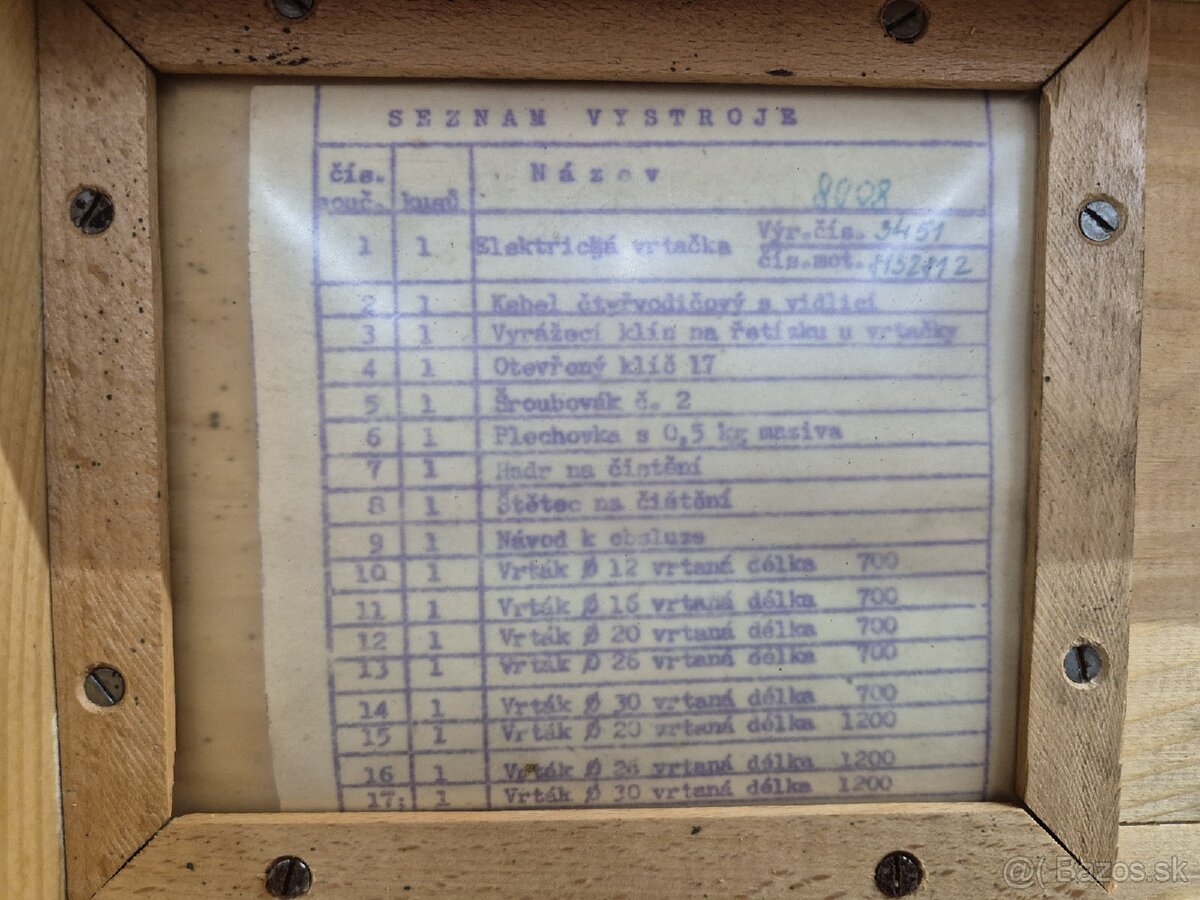 SEZNAM VYSTROJE
čís. souč. kusů Názov 8908
1 1 Elektrická vrtačka Výr.čís. 9451
čís.mot.
2 1 Kabel čtyřvodičový s vidlicí
3 1 Vyrážecí klín na řetízku u vrtačky
4 1 Otevřený klíč 17
5 1 Šroubovák č. 2
6 1 Plechovka s 0,5 kg maziva
7 1 Hadr na čistění
8 1 Štětec na čištění
9 1 Návod k obsluze
10 1 Vrták Ø 12 vrtaná délka 700
11 1 Vrták Ø 16 vrtaná délka 700
12 1 Vrták Ø 20 vrtaná délka 700
13 1 Vrták Ø 26 vrtaná délka 700
14 1 Vrták Ø 30 vrtaná délka 700
15 1 Vrták Ø 20 vrtaná délka 1200
16 1 Vrták Ø 26 vrtaná délka 1200
17 1 Vrták Ø 30 vrtaná délka 1200
Bazos.sk